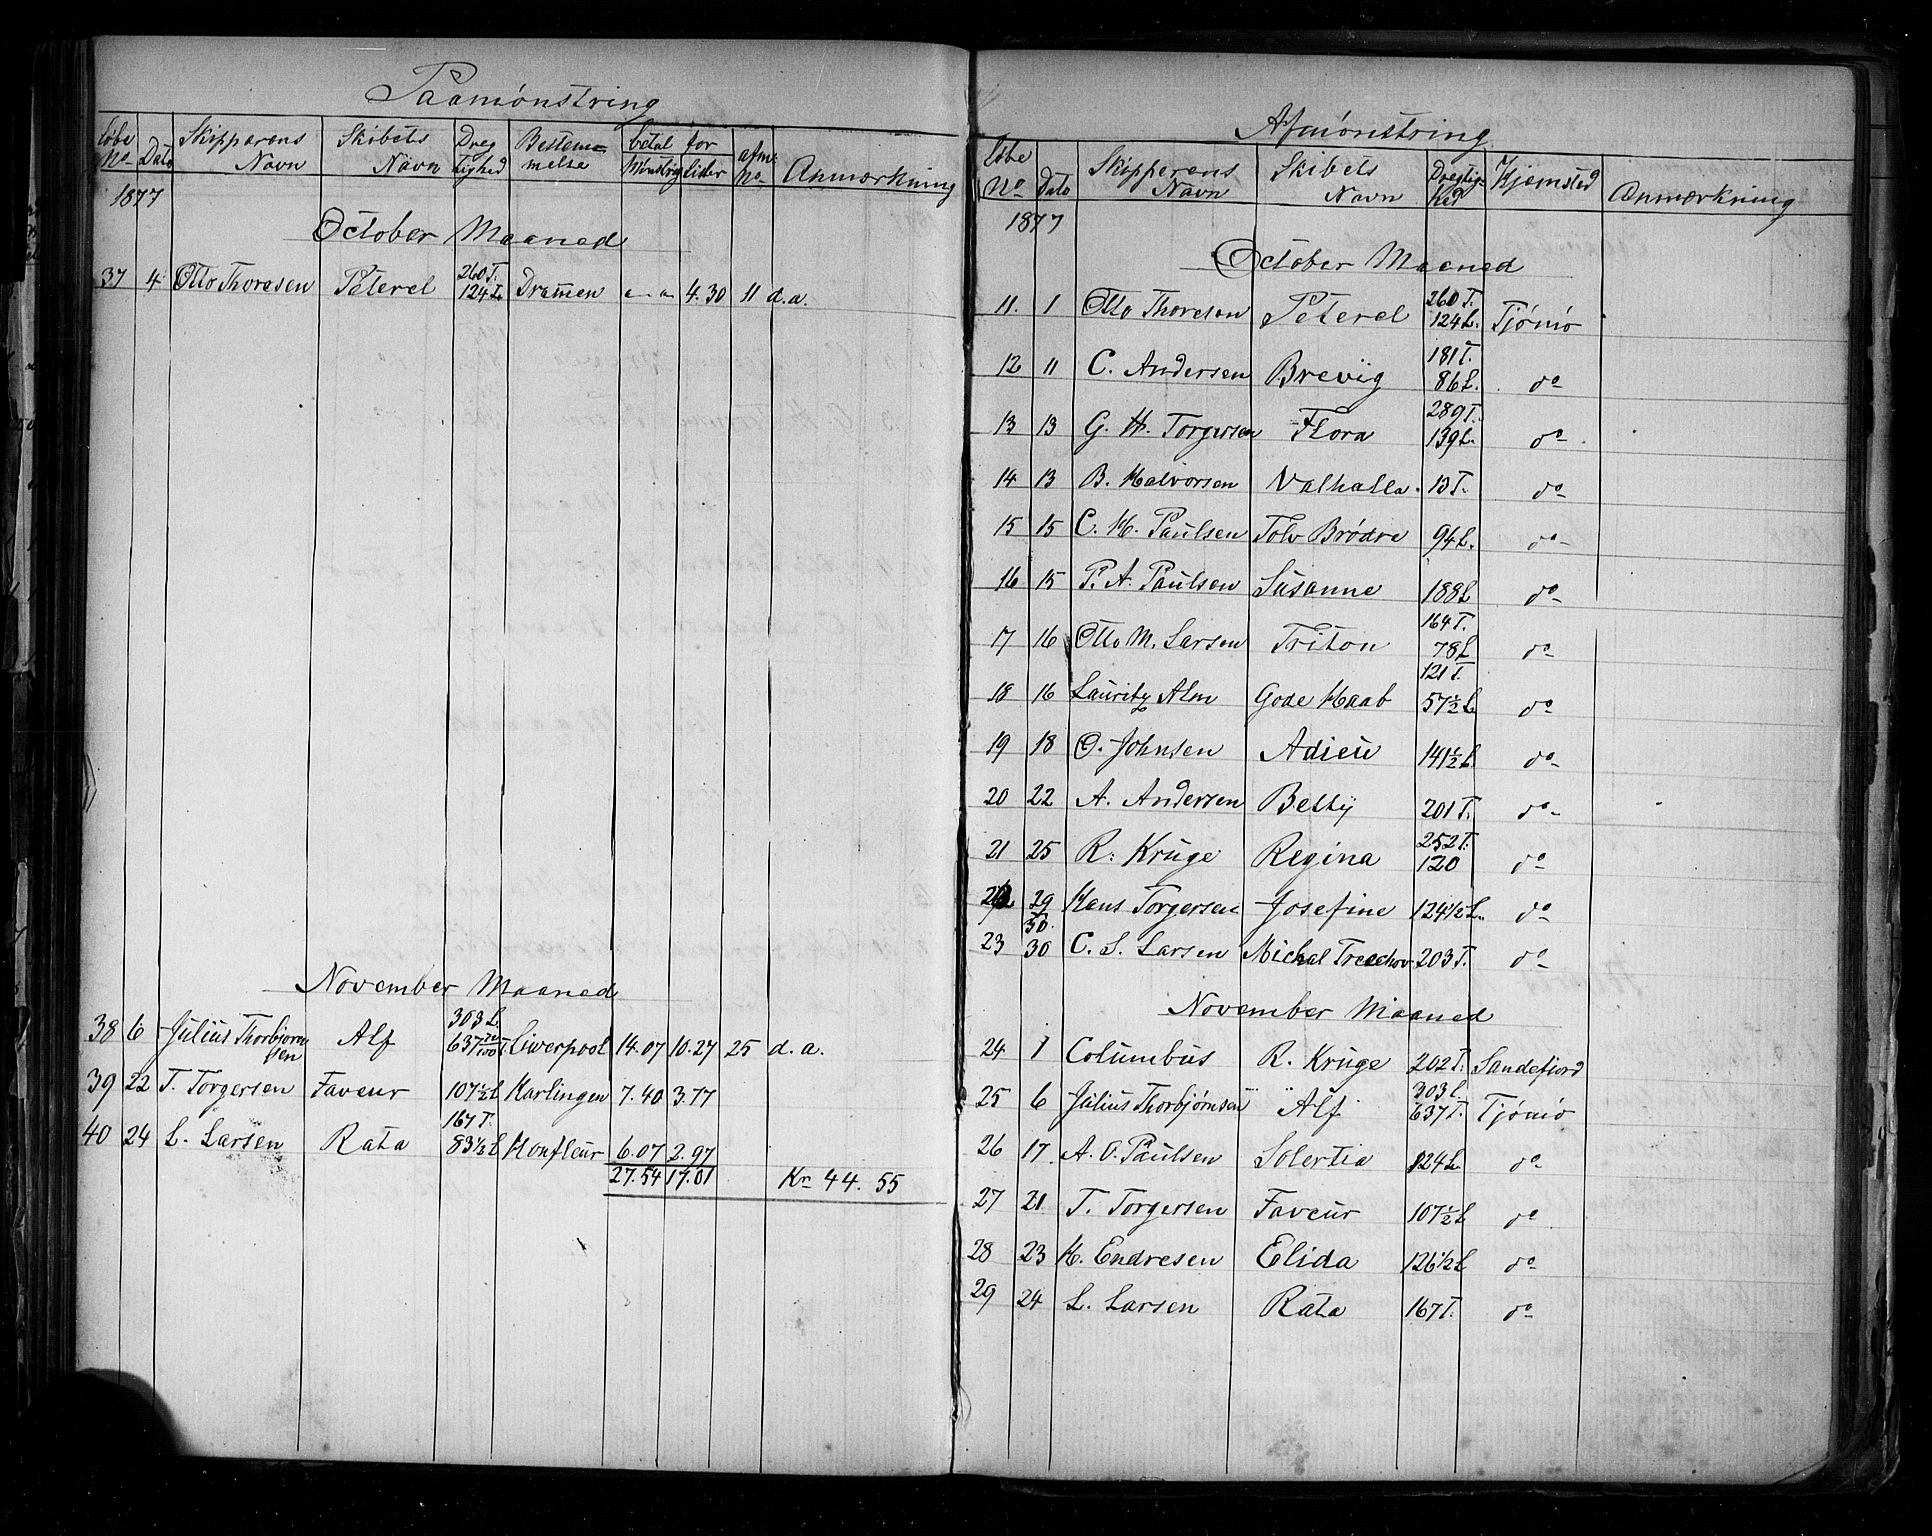 Paamönstring
Löbe No. Dato Skipparens Navn Skibets Navn Dreg tighed Bestem melse betal for Mönstrig Lister afm: No. Anmærkning
1877
October Maaned
37 4 Otto Thoresen Peterel 260 T. 124 L. Dramen " " 4.30 11 d.a.
November Maaned
38 6 Julius Thorbjörnsen Alf 303 L. 637 70/100 T. Liverpool 14.07 10.27 25 d.a.
39 22 T. Torgersen Faveur 107½ L Harlingen 7.40 3.77
40 24 L. Larsen Rata 167 T. 83½ L Honfleur 6.07 2.97
27.54 17.01 Kr. 44.55
Afmönstring
Löbe No. Dato Skipparens Navn Skibets Navn Dregtighed Hjemsted Anmærkning
1877
October Maaned
11. 1 Otto Thoresen Peterel 260 T. 124 L. Tjömö
12 11 C. Andersen Brevig 181 T. 86 L. do
13 13 G. H. Torgersen Flora 289 T. 139 L. do
14 13 B. Halvorsen Valhalla 13 T. do
15 15 C. H. Paulsen Tolv Brödre 94 L. do
16 15 P. A. Paulsen Susanne 188 L do
17 16 Otto M. Larsen Triton 164 T. 78 L do
18 16 Lauritz Alm Gode Haab 121 T. 57½ L do
19 18 O. Johnsen Adieu 141½ L do
20 22 A. Andersen Betty 201 T. do
21 25 R. Kruge Regina 252 T. 120 do
22 29 30. Hans Torgersen Josefine 124½ L. do
23 30 C. S. Larsen Michal Trechov 203 T. do
November Maaned
24 1 Columbus R. Kruge 202 T. Sandefjord
25 6 Julius Thorbjörnsen Alf 303 L. 637 T. Tjömö
26 17. A. O. Paulsen Solertia 124 L. do
27 21 T. Torgersen Faveur 107½ L do
28 23 H. Endresen Elida 126½ L do
29 24 L. Larsen Rata 167 T. do